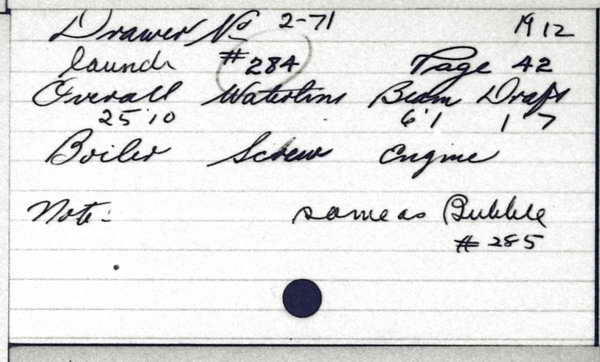 Drawer No 2-71 1912
launch #284 Page 42
Overall Waterline Beam Draft
25'10 6'1 1 7
Boiler Screw Engine
Note: same as Bubble
#285